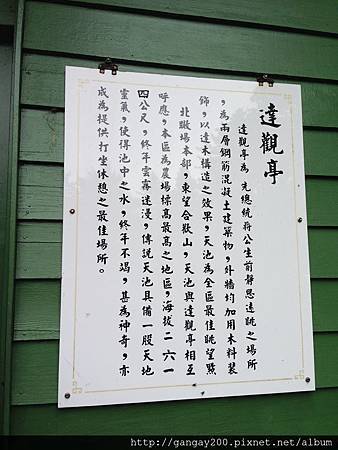 達觀亭
達觀亭為 先總統蔣公生前靜思遠眺之場所
，為兩層鋼筋混凝土建築物，外牆均加用木料裝
飾，以達木構造之效果，天池為全區最佳眺望點
北瞰場本部，東望合歡山，天池與達觀亭相互
呼應，本區為農場標高最高之地區，海拔二六一
四公尺，終年雲霧迷漫，傳說天池具備一股天地
靈氣，使得池中之水，終年不竭，甚為神奇，亦
成為提供打坐休憩之最佳場所。
http://gangay200.pixnet.net/album